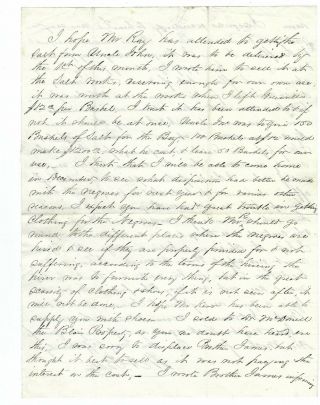 I hope Mr Ray has attended to getting the
Salt from Uncle John, it was to be delivered by
the 10th of this month, I wrote him to see it at
the Salt works, reserving enough for our own use
it was worth at the works when I left
$12 per Bushel. I trust it has been attended to & if
not it should be at once, Uncle Jno was to give 150
Bushels of Salt for the Boy. 100 Bushels at would
make $1200 which he can & leave 50 Bushels for our
use, I think that I will be able to come home
in December to see what disposition had better be made
with the Negroes for next year & for various other
reasons. I expect you have had great trouble in getting
Clothing for the Negroes, I think Mr R should go
round to the different places where the Negroes are
hired & see if they are properly provided for & not
suffering, according to the terms of the hiring the
hirer was to furnish every thing, but in the great
scarsity of clothing & shoes, if it is not seen after it
will not be done, I hope Mr has been able to
supply you with shoes. I sold to Dr McDowell
the Blair Property, as you no doubt have heard ere
this, I was sorry to displace Brother James, but
thought it best to sell as it was not paying the
interest on the cost, I wrote Brother James